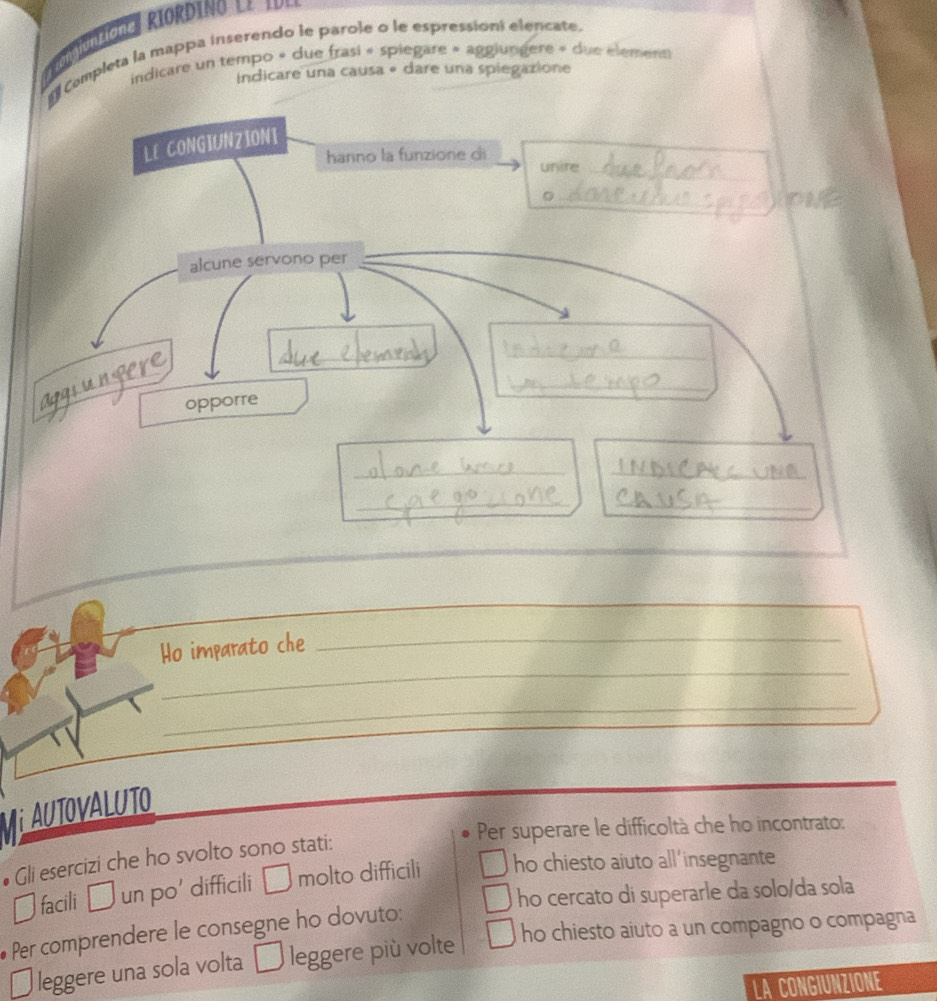 RIORDINO LE IDEE
Completa la mappa inserendo le parole o le espressioni elencate.
indicare un tempo • due frasi • spiegare • aggiungere • due elementi
indicare una causa • dare una spiegazione
LE CONGIUNZIONI
hanno la funzione di
unire due
o
alcune servono per
aggiungere
opporre
due elementi
un tempo
INDICARE UNA
CAUSA
Ho imparato che
Mi AUTOVALUTO
• Gli esercizi che ho svolto sono stati:
facili un po' difficili molto difficili
• Per comprendere le consegne ho dovuto:
leggere una sola volta leggere più volte
• Per superare le difficoltà che ho incontrato:
ho chiesto aiuto all'insegnante
ho cercato di superarle da solo/da sola
ho chiesto aiuto a un compagno o compagna
LA CONGIUNZIONE